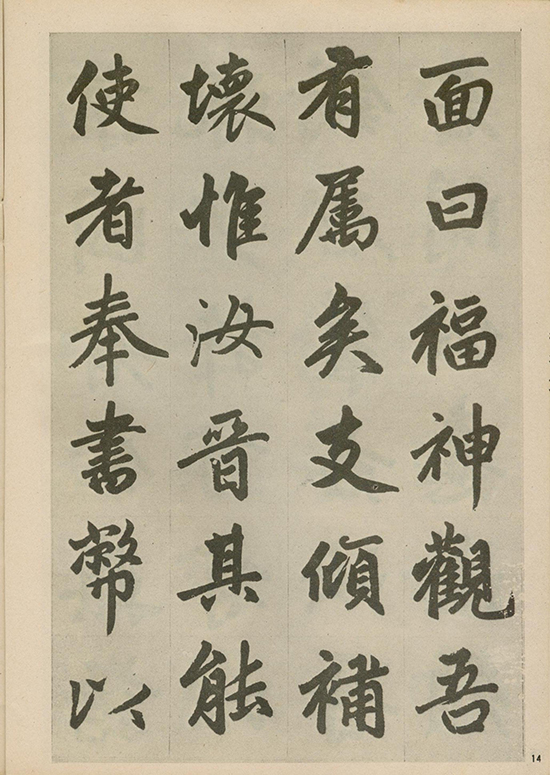 面曰福神觀吾
有属矣支傾補
壞惟汝晉其能
使者奉書幣以
14